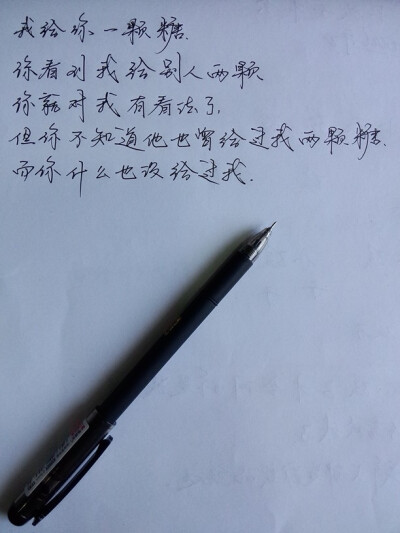 我给你一颗糖.
你看到我给别人两颗
你就对我有看法了,
但你不知道他也曾给过我两颗糖.
而你什么也没给过我.